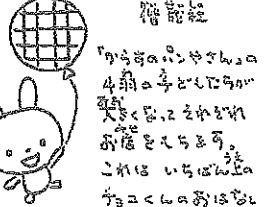 「からすのパンやさん」の
4羽の子どもたちが
大きくなってそれぞれ
お店をもちます。
これは いちばん上の
チョコくんのおはなし